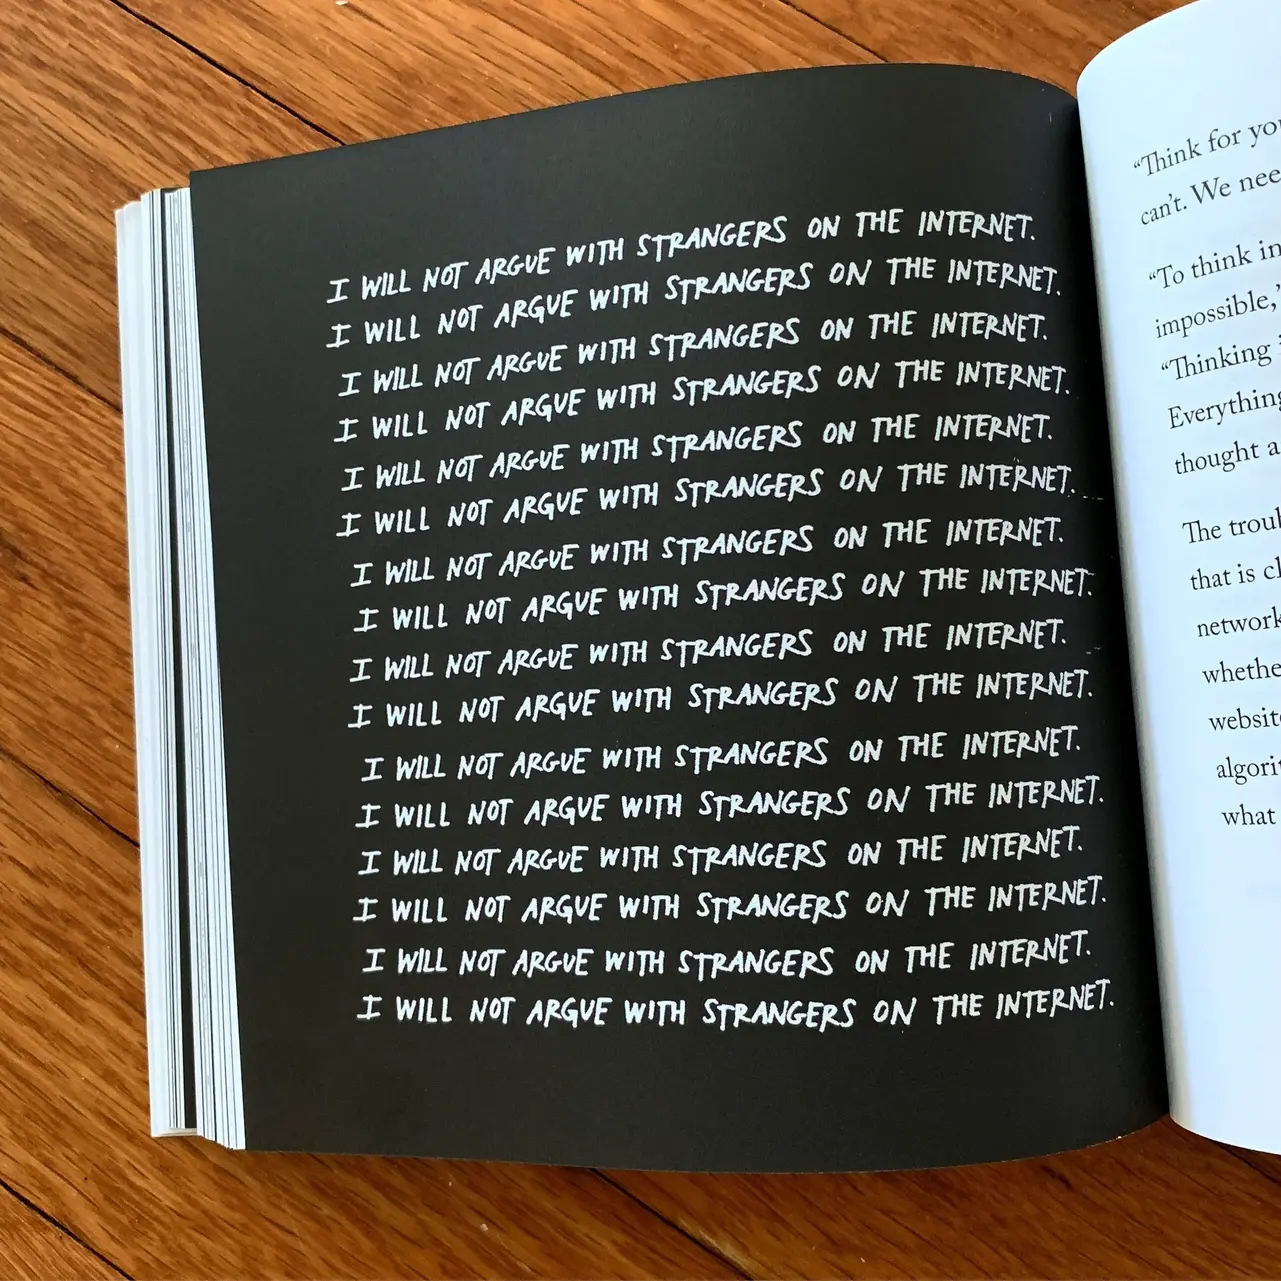 I WILL NOT ARGUE WITH STRANGERS ON THE INTERNET.
I WILL NOT ARGUE WITH STRANGERS ON THE INTERNET.
I WILL NOT ARGUE WITH STRANGERS ON THE INTERNET.
I WILL NOT ARGUE WITH STRANGERS ON THE INTERNET.
I WILL NOT ARGUE WITH STRANGERS ON THE INTERNET.
I WILL NOT ARGUE WITH STRANGERS ON THE INTERNET.
I WILL NOT ARGUE WITH STRANGERS ON THE INTERNET.
I WILL NOT ARGUE WITH STRANGERS ON THE INTERNET.
I WILL NOT ARGUE WITH STRANGERS ON THE INTERNET.
I WILL NOT ARGUE WITH STRANGERS ON THE INTERNET.
I WILL NOT ARGUE WITH STRANGERS ON THE INTERNET.
I WILL NOT ARGUE WITH STRANGERS ON THE INTERNET.
I WILL NOT ARGUE WITH STRANGERS ON THE INTERNET.
I WILL NOT ARGUE WITH STRANGERS ON THE INTERNET.
I WILL NOT ARGUE WITH STRANGERS ON THE INTERNET.
I WILL NOT ARGUE WITH STRANGERS ON THE INTERNET.
“Think for
can’t. We
“To think
impossible,”
“Thinking
Everything
thought
The
that is
network
whether
what